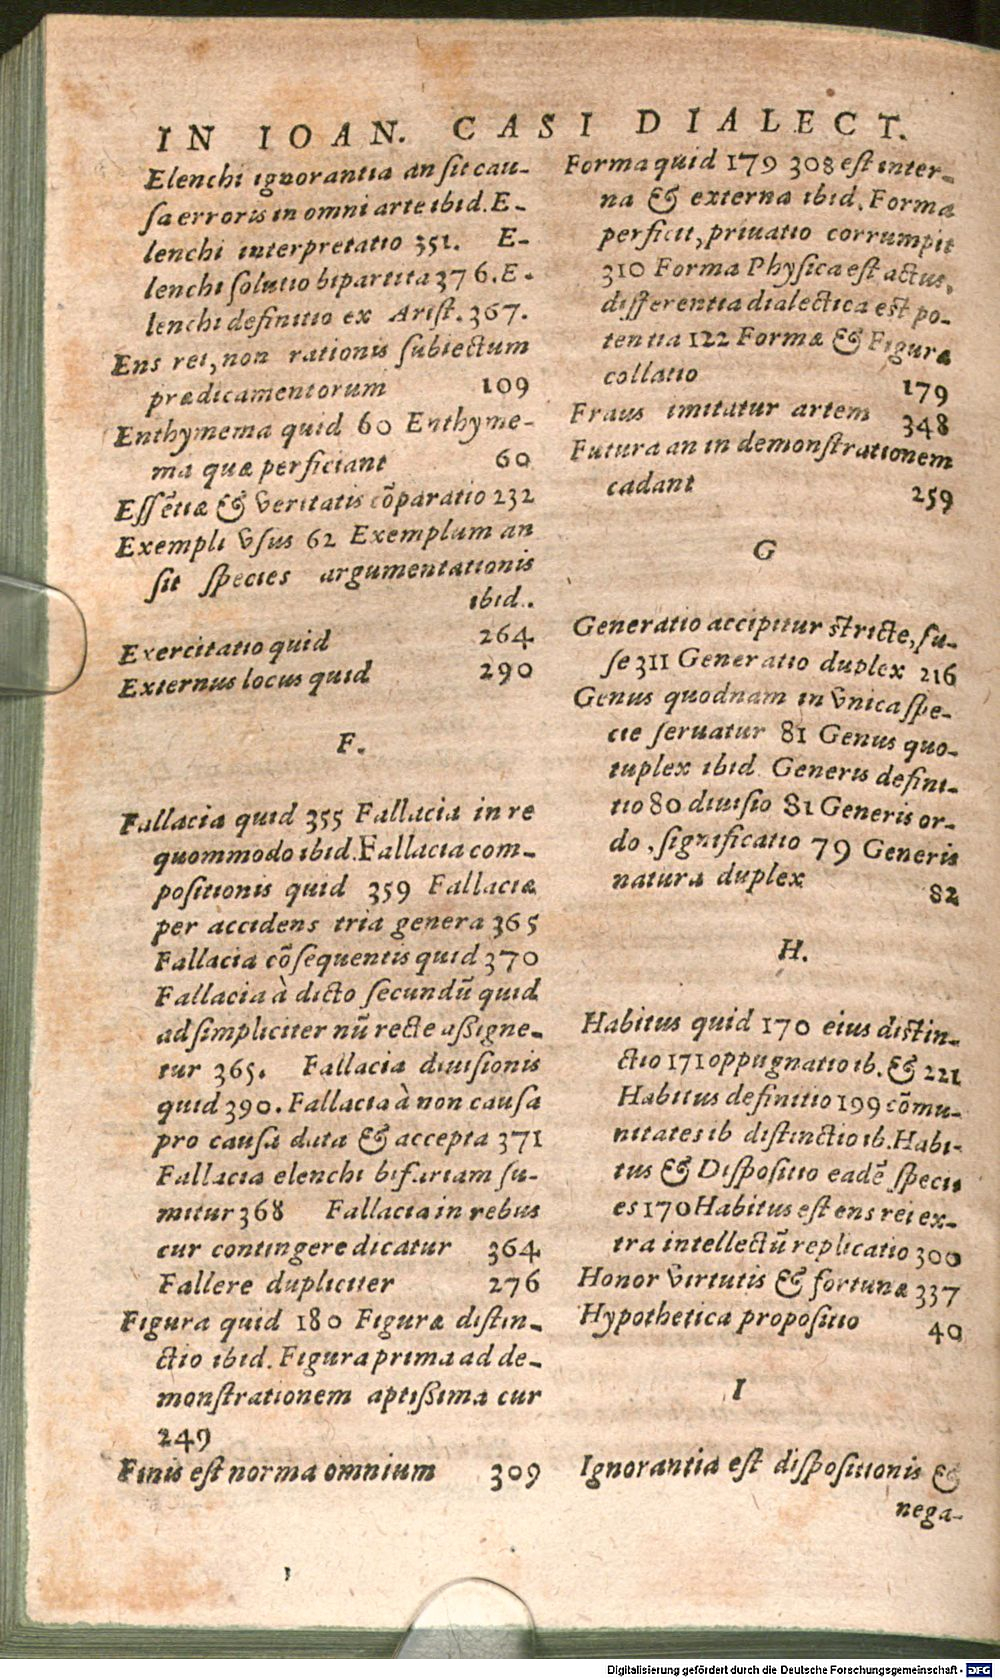 IN IOAN. CASI DIALECT.
Elenchi ignorantia an sit cau-
sa erroris in omni arte ibid. E-
lenchi interpretatio 351. E-
lenchi solutio bipartita 376. E-
lenchi definitio ex Arist. 367.
Ens rei, non rationis subiectum
prædicamentorum 109
Enthymema quid 60 Enthyme-
ma quæ perficiant 60
Essẽtiæ & veritatis cõparatio 232
Exempli vsus 62 Exemplum an
sit species argumentationis
ibid.
Exercitatio quid 264
Externus locus quid 290
F.
Fallacia quid 355 Fallacia in re
quommodo ibid. Fallacia com-
positionis quid 359 Fallaciæ
per accidens tria genera 365
Fallacia cõsequentis quid 370
Fallacia à dicto secundũ quid
ad simpliciter nũ recte aßigne-
tur 365. Fallacia diuisionis
quid 390. Fallacia à non causa
pro causa data & accepta 371
Fallacia elenchi bifariam su-
mitur 368 Fallacia in rebus
cur contingere dicatur 364
Fallere dupliciter 276
Figura quid 180 Figuræ distin-
ctio ibid. Figura prima ad de-
monstrationem aptißima cur
249
Finis est norma omnium 309
Forma quid 179 308 est inter-
na & externa ibid. Forma
perficit, priuatio corrumpit
310 Forma Physica est actus,
differentia dialectica est po-
tentia 122 Formæ & Figuræ
collatio 179
Fraus imitatur artem 348
Futura an in demonstrationem
cadant 259
G
Generatio accipitur stricte, fu-
se 311 Generatio duplex 216
Genus quodnam in vnica spe-
cie seruatur 81 Genus quo-
tuplex ibid Generis defini-
tio 80 diuisio 81 Generis or-
do, significatio 79 Generis
natura duplex 82
H.
Habitus quid 170 eius distin-
ctio 171 oppugnatio ib. & 221
Habitus definitio 199 cõmu-
nitates ib distinctio ib. Habi-
tus & Dispositio eadẽ speci
es 170 Habitus est ens rei ex-
tra intellectũ replicatio 300
Honor virtutis & fortunæ 337
Hypothetica propositio 40
I
Ignorantia est dispositionis &
nega-
Digitalisierung gefördert durch die Deutsche Forschungsgemeinschaft - DFG